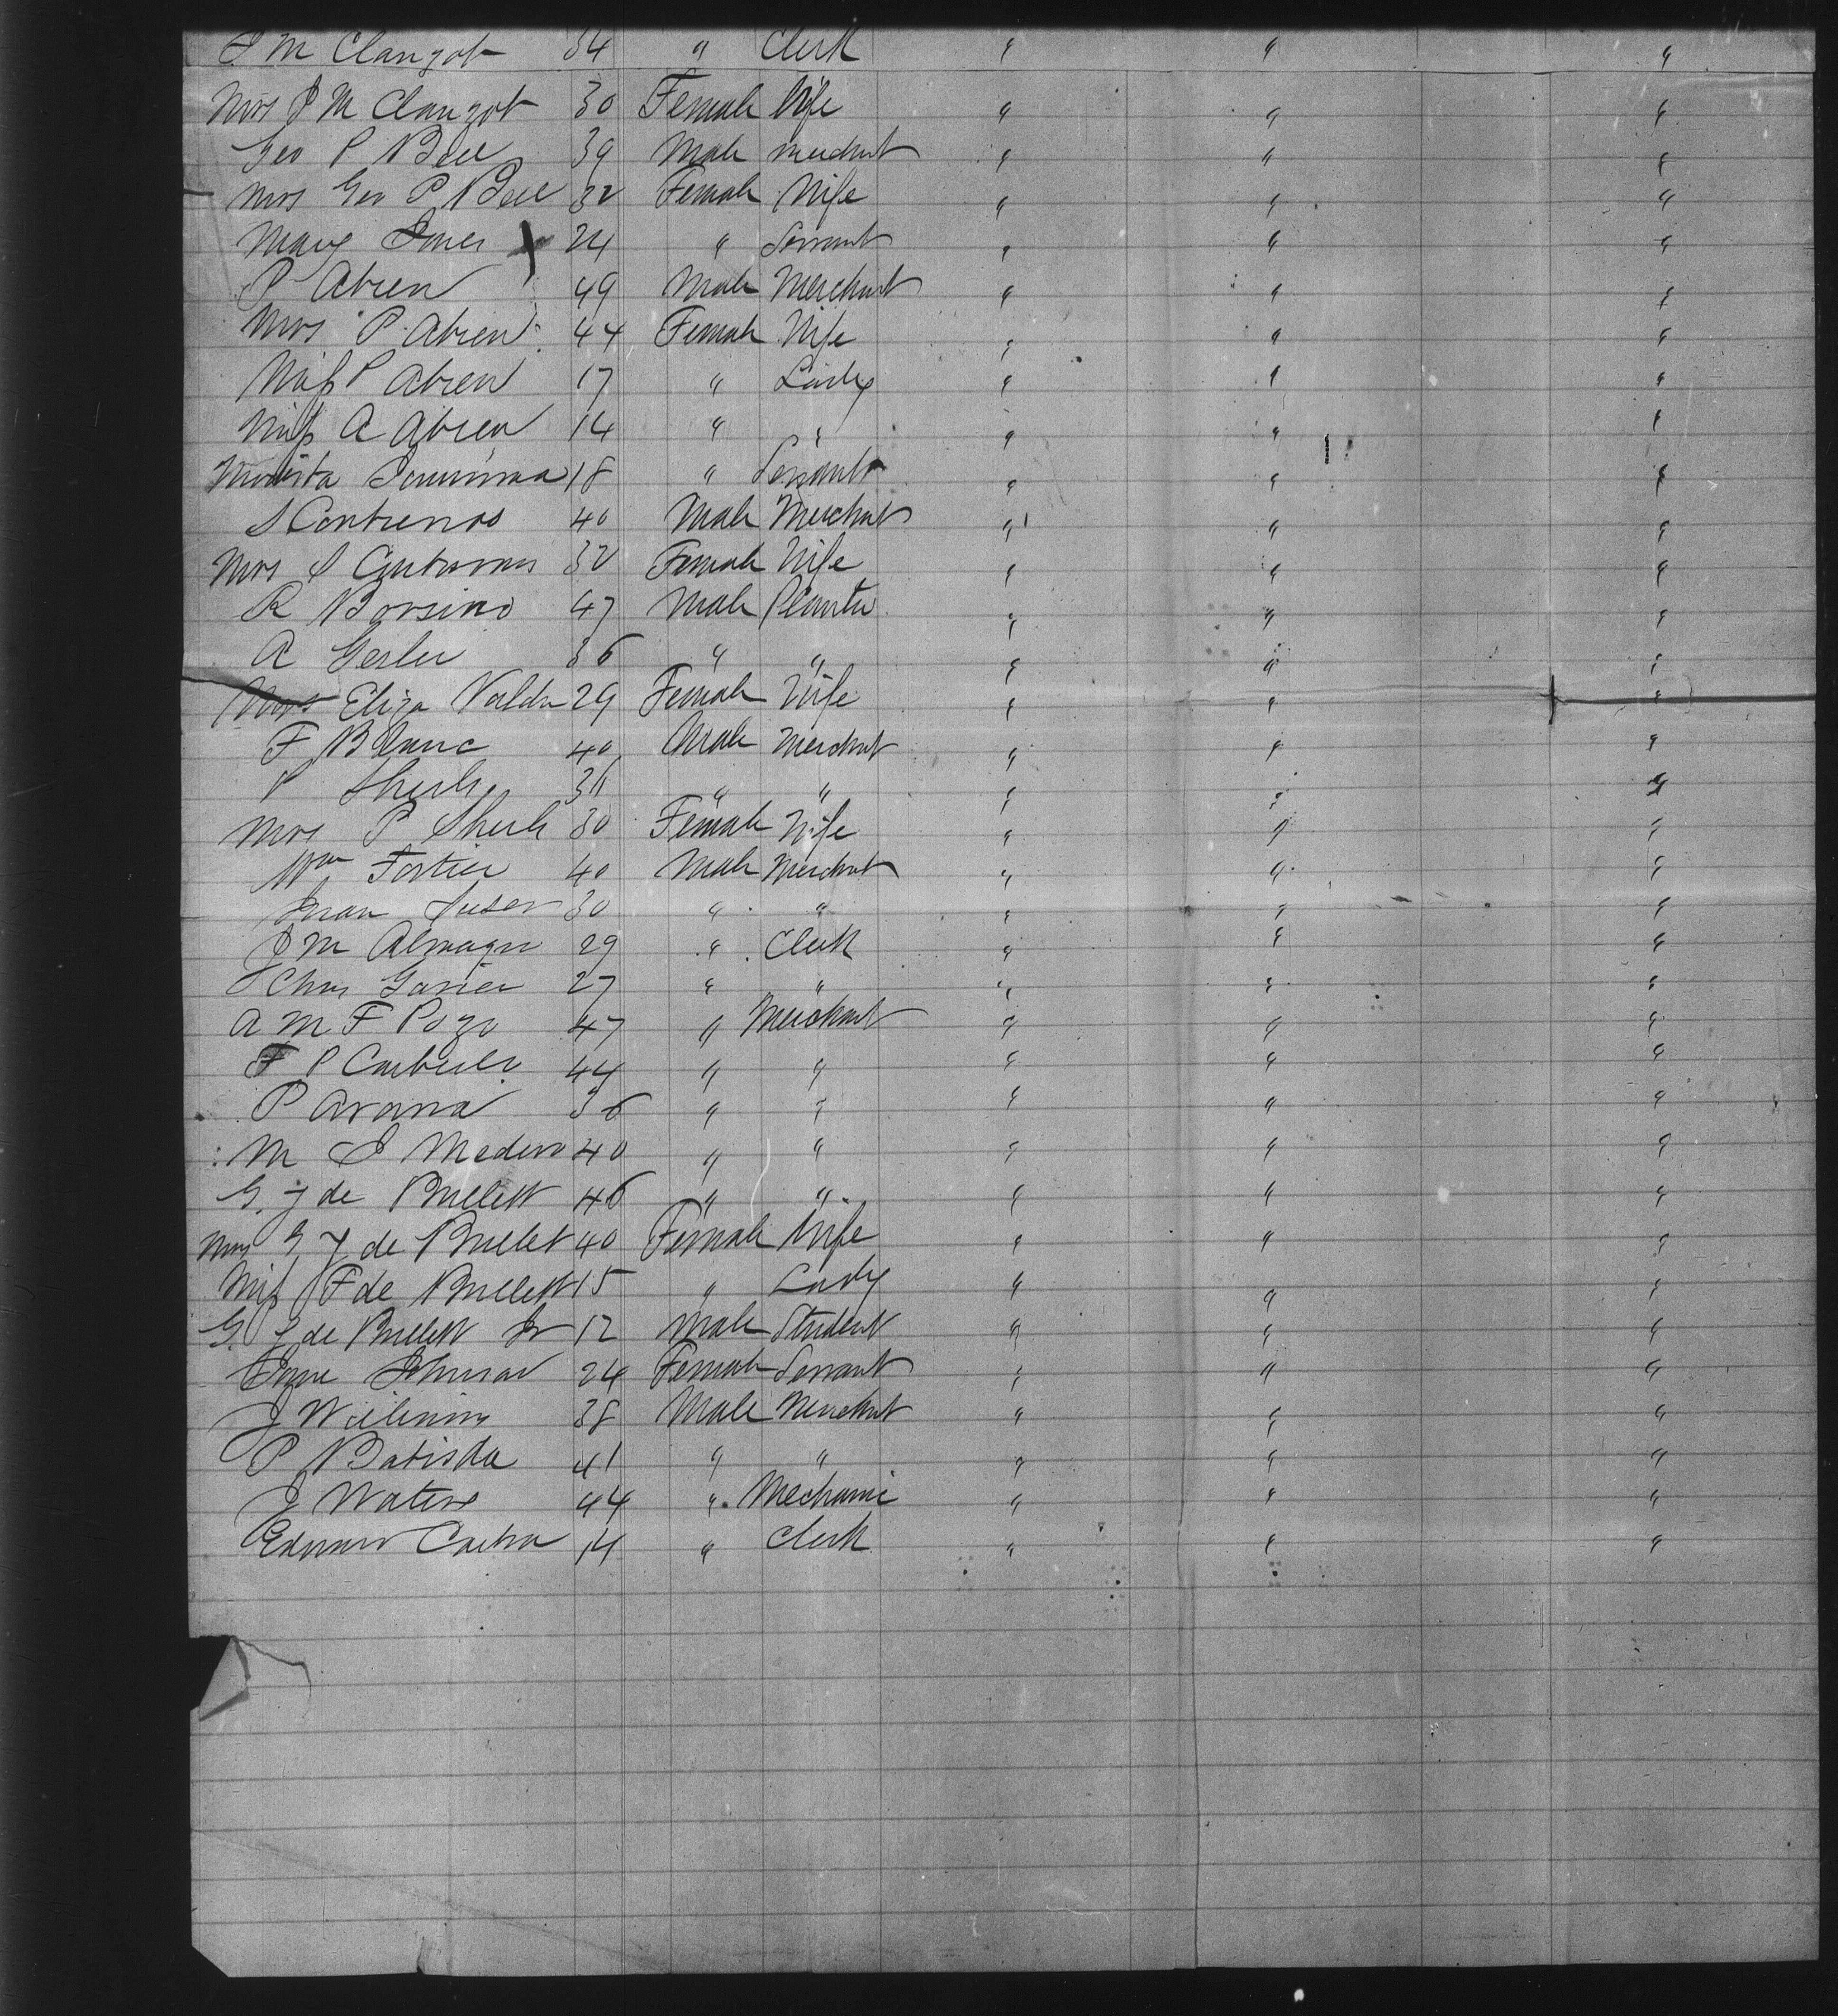 J M Clanzot 34 " Clerk " " "
Mrs J M Clanzot 30 Female Wife " " "
Geo P Bell 39 Male Merchant " " "
Mrs Geo P Bell 32 Female Wife " " "
Mary 24 " Servant " " "
P Abreu 49 Male Merchant " " "
Mrs P Abreu 44 Female Wife " " "
Miss P Abreu 17 " Lady " " "
Miss A Abreu 14 " " " " "
18 " Servant " " "
S Contreras 40 Male Merchant " " "
Mrs S Contreras 32 Female Wife " " "
R Borsino 47 Male Planter " " "
A 36 " " " " "
Mrs Eliza 29 Female Wife " " "
F Blanc 40 Male Merchant " " "
P 36 " " " " "
Mrs P 30 Female Wife " " "
Wm Fortier 40 Male Merchant " " "
Juan 30 " " " " "
J M Almagro 29 " Clerk " " "
Chas 27 " " " " "
A M F Pozo 47 " Merchant " " "
F P 44 " " " " "
P Arana 36 " " " " "
M J Madero 40 " " " " "
G. J de Bullett 46 " " " " "
Mrs G J de Bullet 40 Female Wife " " "
Miss F de Bullett 15 " Lady " " "
G. J de Bullett Jr 12 Male Student " " "
24 Female Servant " " "
J 38 Male Merchant " " "
P Batista 41 " " " " "
J Waters 44 " Mechanic " " "
14 " Clerk " " "